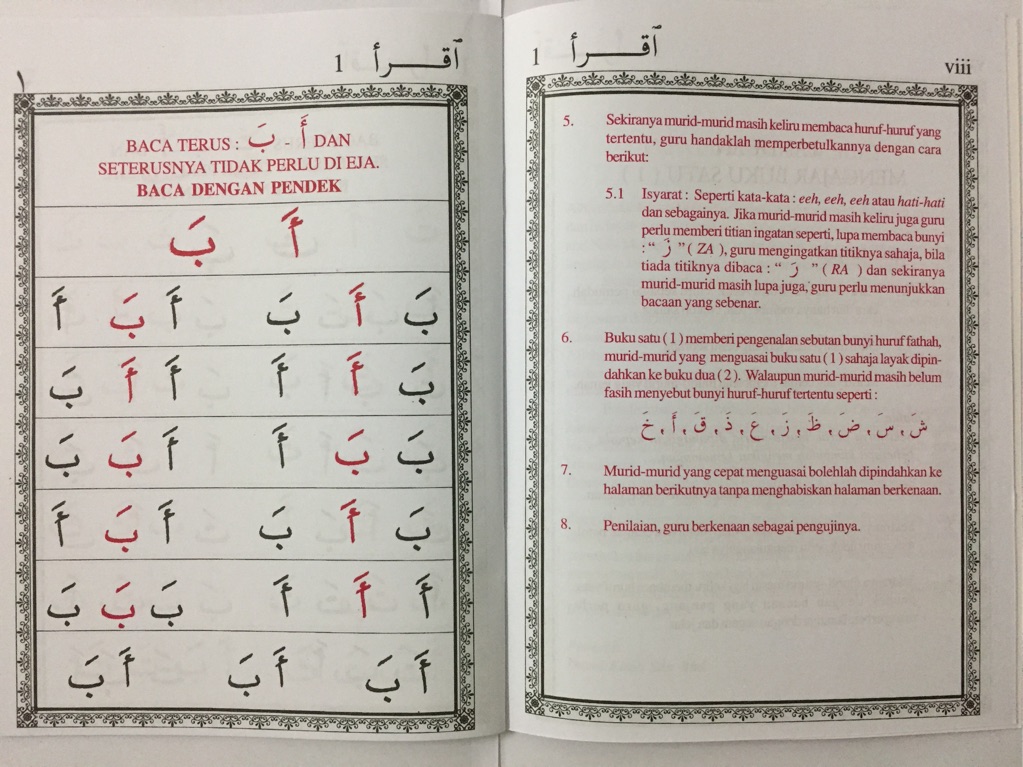 1 ٱقــرأ viii
5. Sekiranya murid-murid masih keliru membaca huruf-huruf yang
tertentu, guru handaklah memperbetulkannya dengan cara
berikut:
5.1 Isyarat : Seperti kata-kata : eeh, eeh, eeh atau hati-hati
dan sebagainya. Jika murid-murid masih keliru juga guru
perlu memberi titian ingatan seperti, lupa membaca bunyi
: “ زَ ” ( ZA ), guru mengingatkan titiknya sahaja, bila
tiada titiknya dibaca : “ رَ ” ( RA ) dan sekiranya
murid-murid masih lupa juga, guru perlu menunjukkan
bacaan yang sebenar.
6. Buku satu ( 1 ) memberi pengenalan sebutan bunyi huruf fathah,
murid-murid yang menguasai buku satu ( 1 ) sahaja layak dipin-
dahkan ke buku dua ( 2 ). Walaupun murid-murid masih belum
fasih menyebut bunyi huruf-huruf tertentu seperti :
شَ , سَ , ضَ , ظَ , زَ , عَ , ذَ , قَ , أَ , خَ
7. Murid-murid yang cepat menguasai bolehlah dipindahkan ke
halaman berikutnya tanpa menghabiskan halaman berkenaan.
8. Penilaian, guru berkenaan sebagai pengujinya.
١ 1 ٱقــرأ
BACA TERUS : أَ - بَ DAN
SETERUSNYA TIDAK PERLU DI EJA.
BACA DENGAN PENDEK
أَ بَ
بَ أَ بَ أَ بَ أَ
بَ أَ أَ أَ أَ بَ
بَ بَ أَ أَ بَ بَ
بَ أَ بَ أَ بَ أَ
أَ أَ أَ بَ بَ بَ
أَ بَ أَ بَ أَ بَ